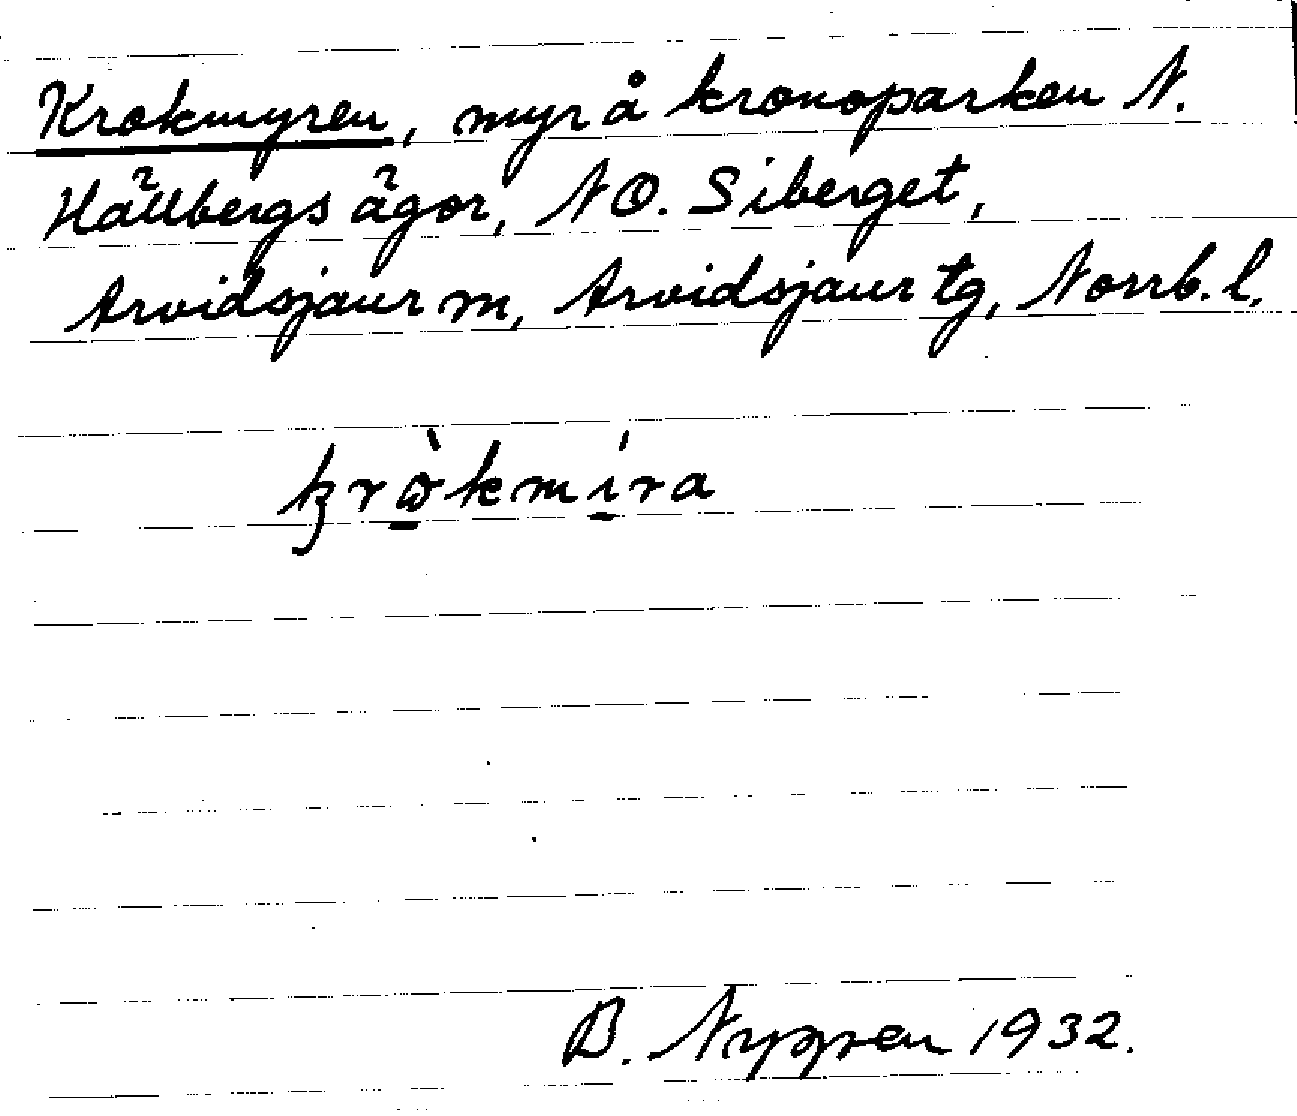 Krokmyren, myr å kronoparken N.
Hällbergs ägor, NO. Siberget,
Arvidsjaur m, Arvidsjaur tg, Norrb. l.
B. Nygren 1932.